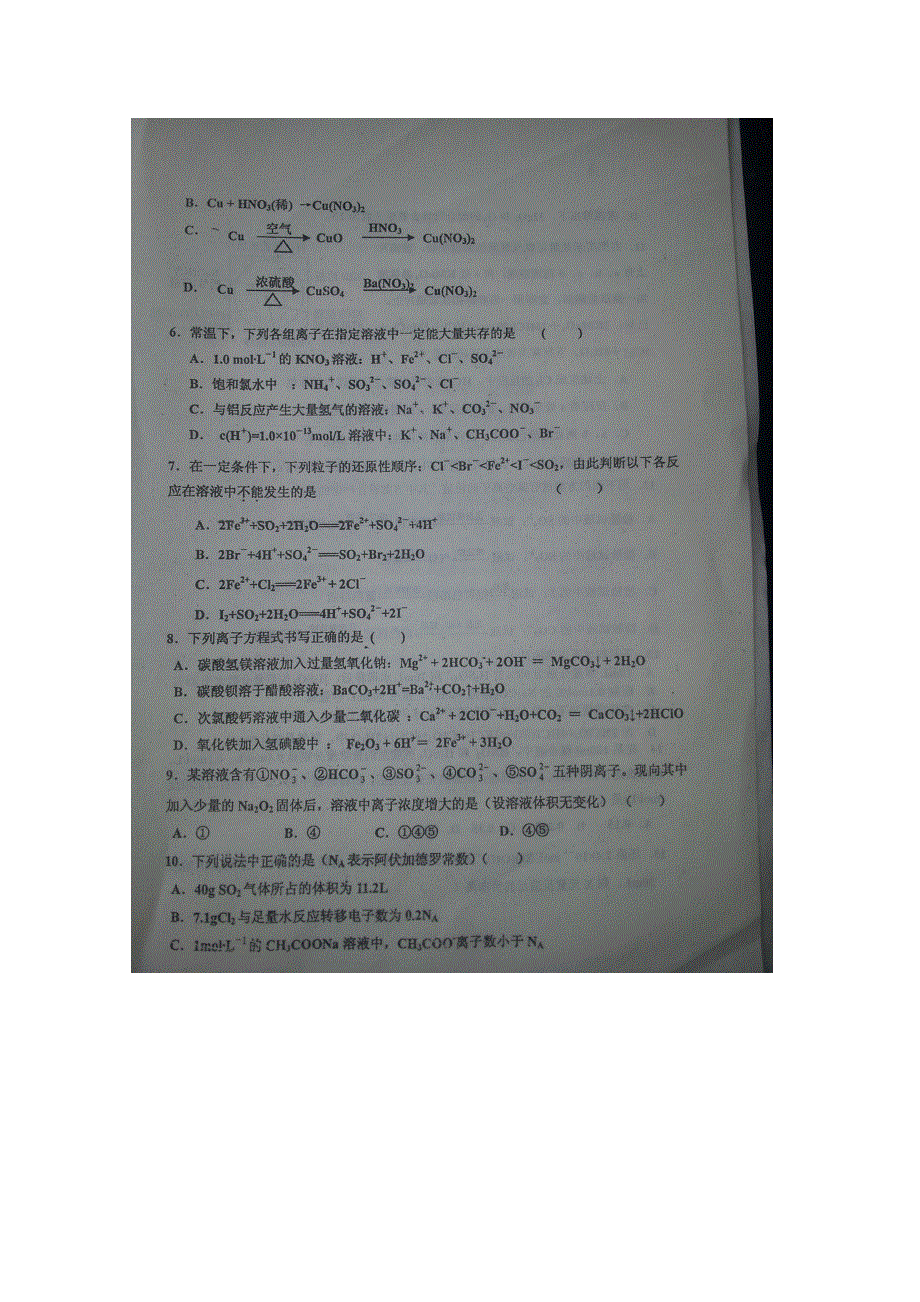 B. Cu + HNO₃(稀) →Cu(NO₃)₂
C. Cu 空气 △ CuO HNO₃ Cu(NO₃)₂
D. Cu 浓硫酸 △ CuSO₄ Ba(NO₃)₂ Cu(NO₃)₂
6. 常温下，下列各组离子在指定溶液中一定能大量共存的是 ( )
A. 1.0 mol·L⁻¹的 KNO₃溶液：H⁺、Fe²⁺、Cl⁻、SO₄²⁻
B. 饱和氯水中 ：NH₄⁺、SO₃²⁻、SO₄²⁻、Cl⁻
C. 与铝反应产生大量氢气的溶液：Na⁺、K⁺、CO₃²⁻、NO₃⁻
D. c(H⁺)=1.0×10⁻¹³mol/L 溶液中：K⁺、Na⁺、CH₃COO⁻、Br⁻
7. 在一定条件下，下列粒子的还原性顺序：Cl⁻<Br⁻<Fe²⁺<I⁻<SO₂，由此判断以下各反
应在溶液中不能发生的是 ( )
A. 2Fe³⁺+SO₂+2H₂O══2Fe²⁺+SO₄²⁻+4H⁺
B. 2Br⁻+4H⁺+SO₄²⁻══SO₂+Br₂+2H₂O
C. 2Fe²⁺+Cl₂══2Fe³⁺+2Cl⁻
D. I₂+SO₂+2H₂O══4H⁺+SO₄²⁻+2I⁻
8. 下列离子方程式书写正确的是 ( )
A. 碳酸氢镁溶液加入过量氢氧化钠：Mg²⁺ + 2HCO₃⁻+ 2OH⁻ = MgCO₃↓+ 2H₂O
B. 碳酸钡溶于醋酸溶液：BaCO₃+2H⁺=Ba²⁺+CO₂↑+H₂O
C. 次氯酸钙溶液中通入少量二氧化碳 ：Ca²⁺ + 2ClO⁻+H₂O+CO₂ = CaCO₃↓+2HClO
D. 氧化铁加入氢碘酸中 ： Fe₂O₃ + 6H⁺= 2Fe³⁺ + 3H₂O
9. 某溶液含有①NO₃⁻、②HCO₃⁻、③SO₃²⁻、④CO₃²⁻、⑤SO₄²⁻五种阴离子。现向其中
加入少量的 Na₂O₂固体后，溶液中离子浓度增大的是（设溶液体积无变化） ( )
A. ① B. ④ C. ①④⑤ D. ④⑤
10. 下列说法中正确的是（Nᴀ表示阿伏加德罗常数）( )
A. 40g SO₂气体所占的体积为 11.2L
B. 7.1gCl₂与足量水反应转移电子数为 0.2Nᴀ
C. 1mol·L⁻¹的 CH₃COONa 溶液中，CH₃COO⁻离子数小于 Nᴀ